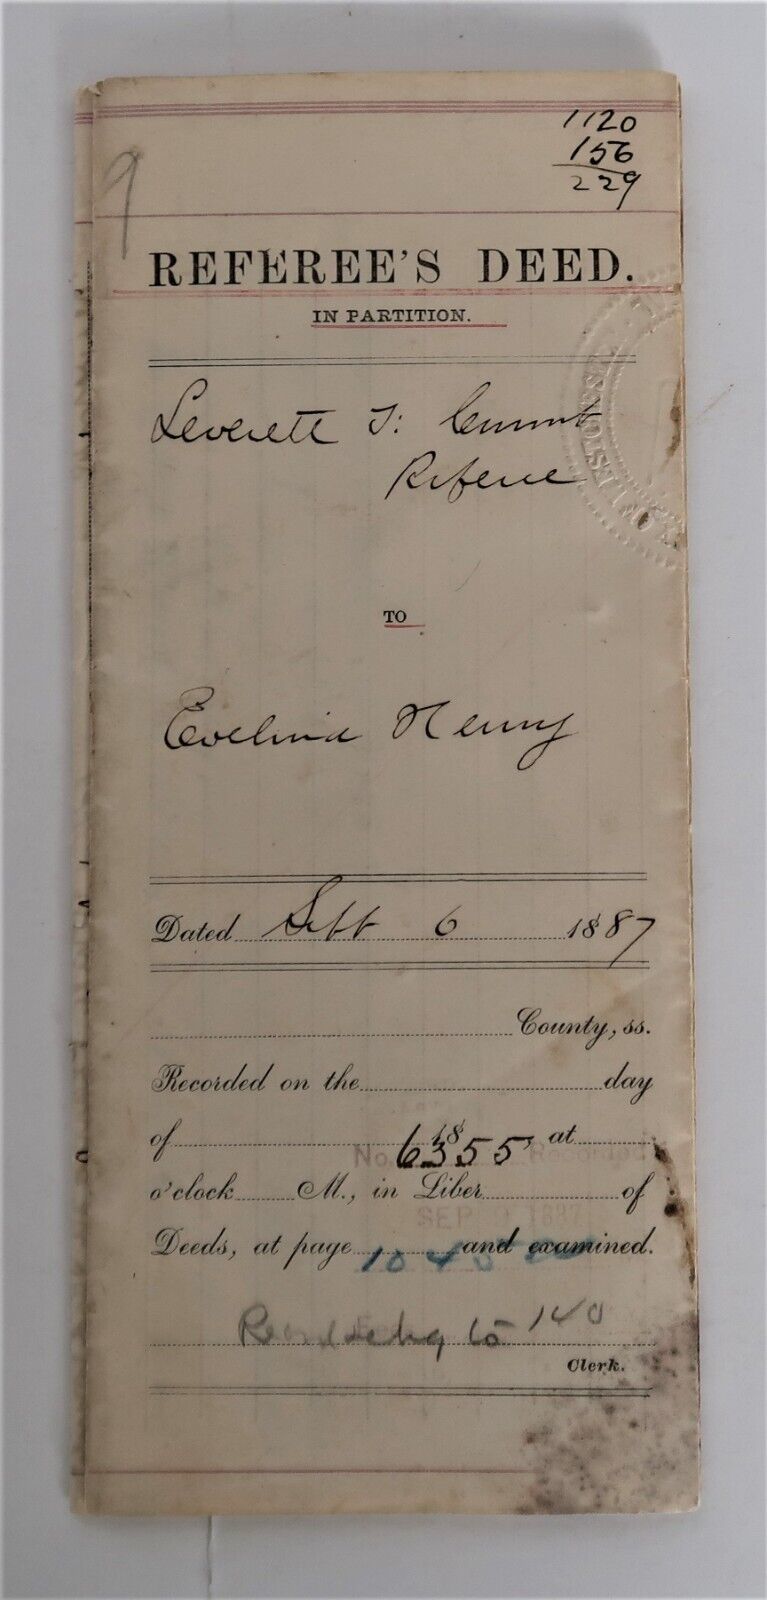 1120
156
229
9
REFEREE'S DEED.
IN PARTITION.
Leverett F:
Referee
TO
Evelina Henry
Dated Sept 6 1887
County, ss.
Recorded on the day
of 18 , at
No. 6355 Recorded
o'clock M., in Liber of
SEP 9 1887
Deeds, at page and examined.
10 45
140
Clerk.